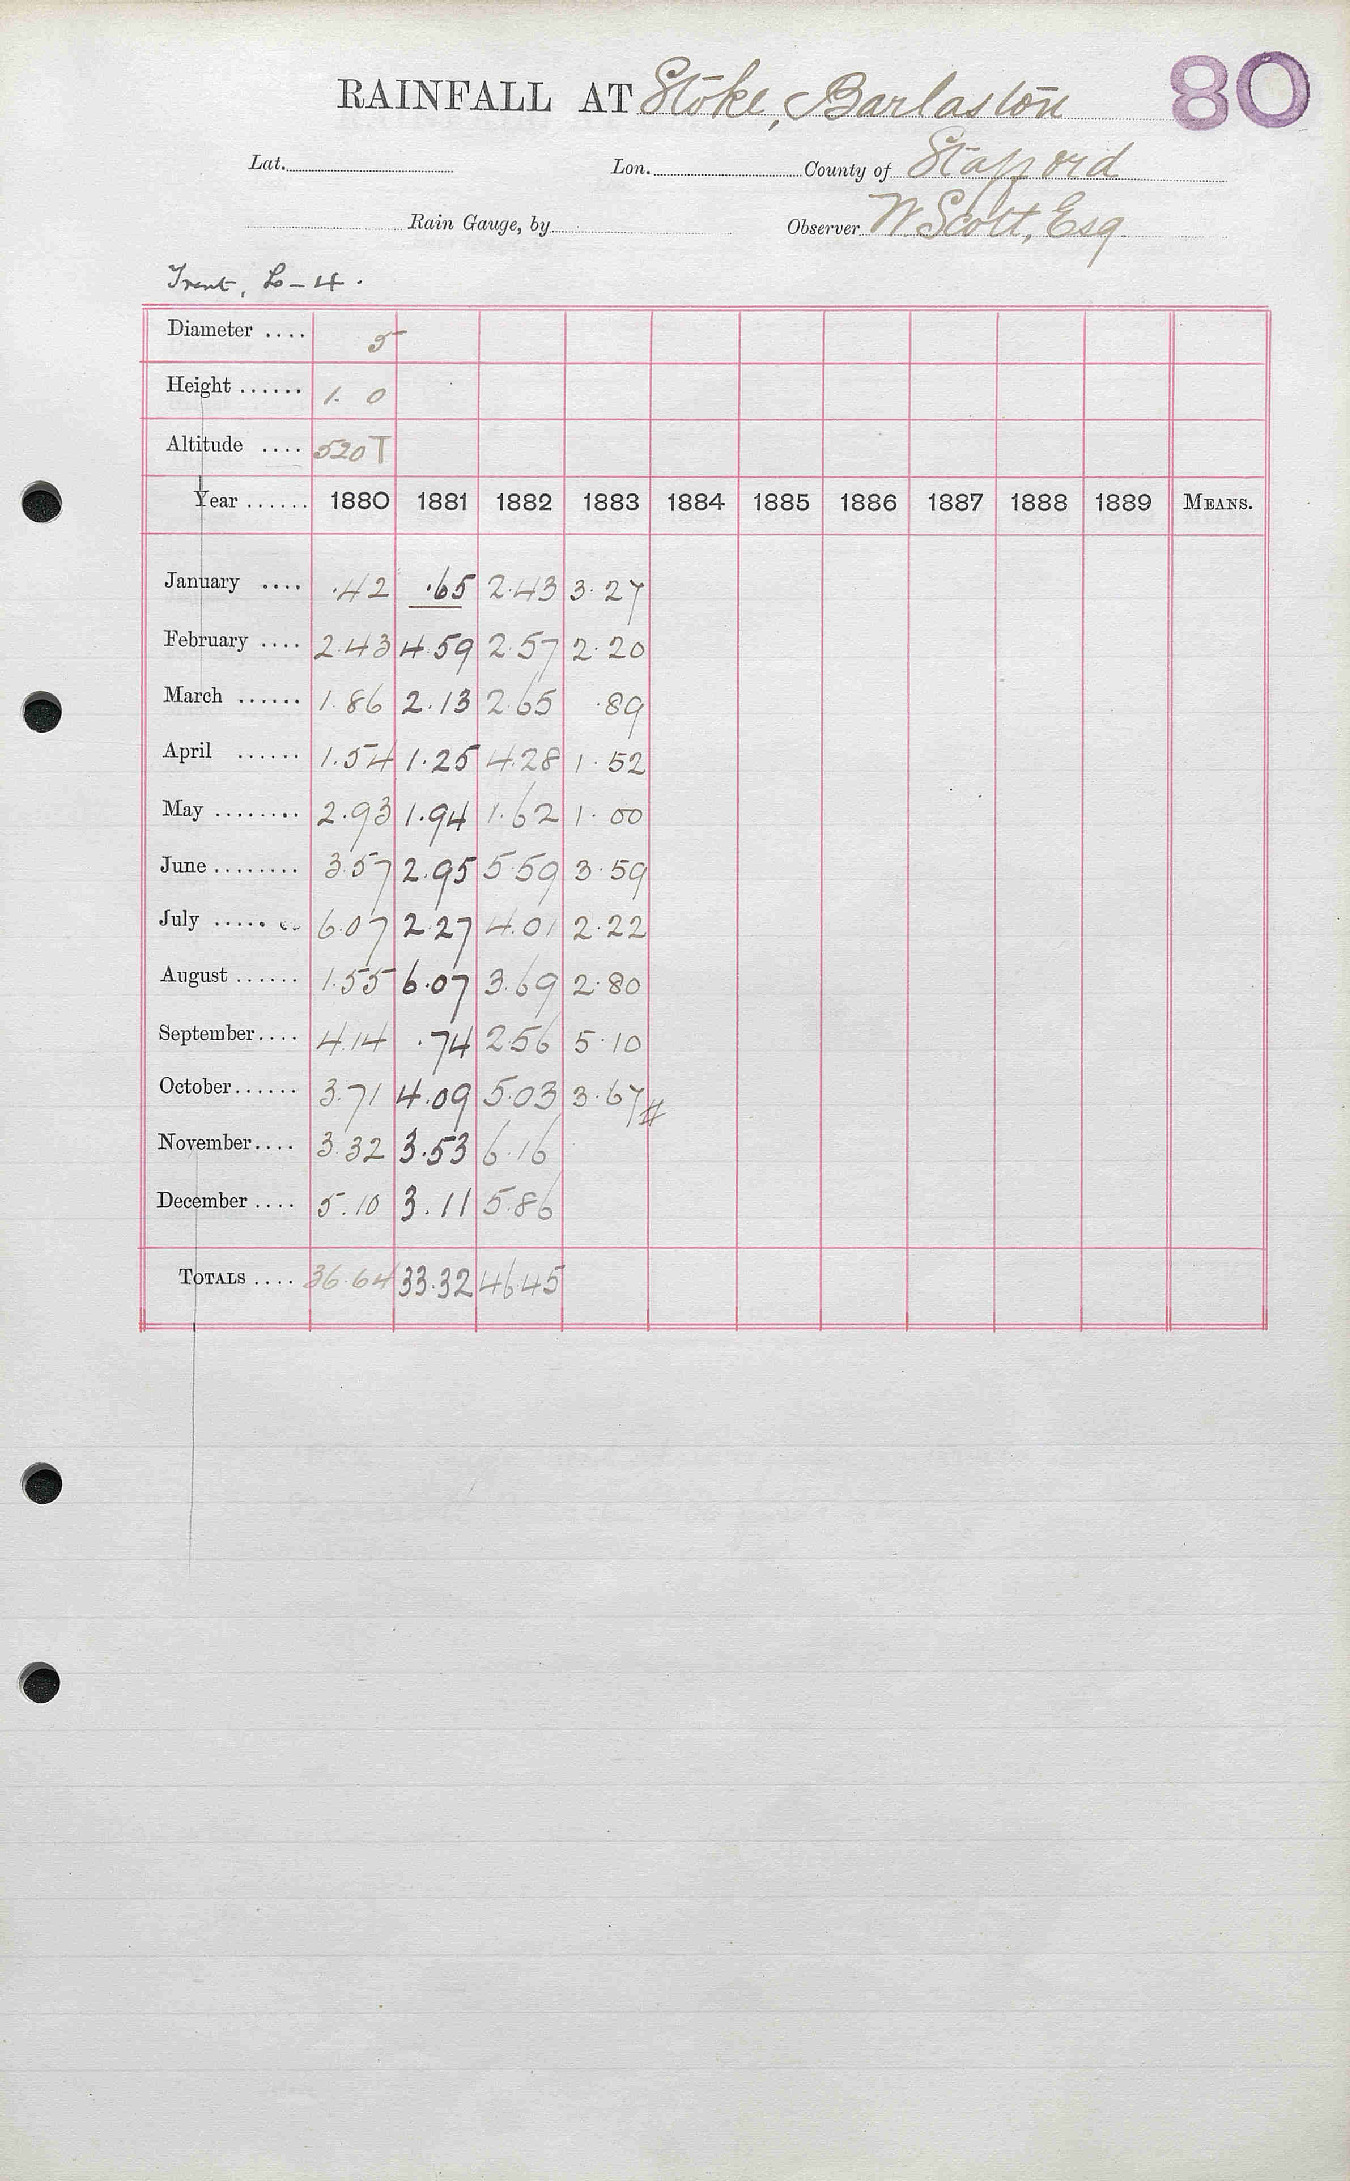 80
RAINFALL AT Stoke, Barlaston
Lat. Lon. County of Stafford
Rain Gauge, by Observer W. Scott, Esq
Trent, L-4.
Diameter .... 5
Height ...... 1. 0
Altitude .... 520 T
Year ...... 1880 1881 1882 1883 1884 1885 1886 1887 1888 1889 MEANS.
January .... .42 .65 2.43 3.27
February .... 2.43 4.59 2.57 2.20
March ...... 1.86 2.13 2.65 .89
April ...... 1.54 1.25 4.28 1.52
May ........ 2.93 1.94 1.62 1.00
June ........ 3.57 2.95 5.59 3.59
July ..... 6.07 2.27 4.01 2.22
August ...... 1.55 6.07 3.69 2.80
September .... 4.14 .74 2.56 5.10
October ...... 3.71 4.09 5.03 3.67 #
November .... 3.32 3.53 6.16
December .... 5.10 3.11 5.86
TOTALS .... 36.64 33.32 46.45